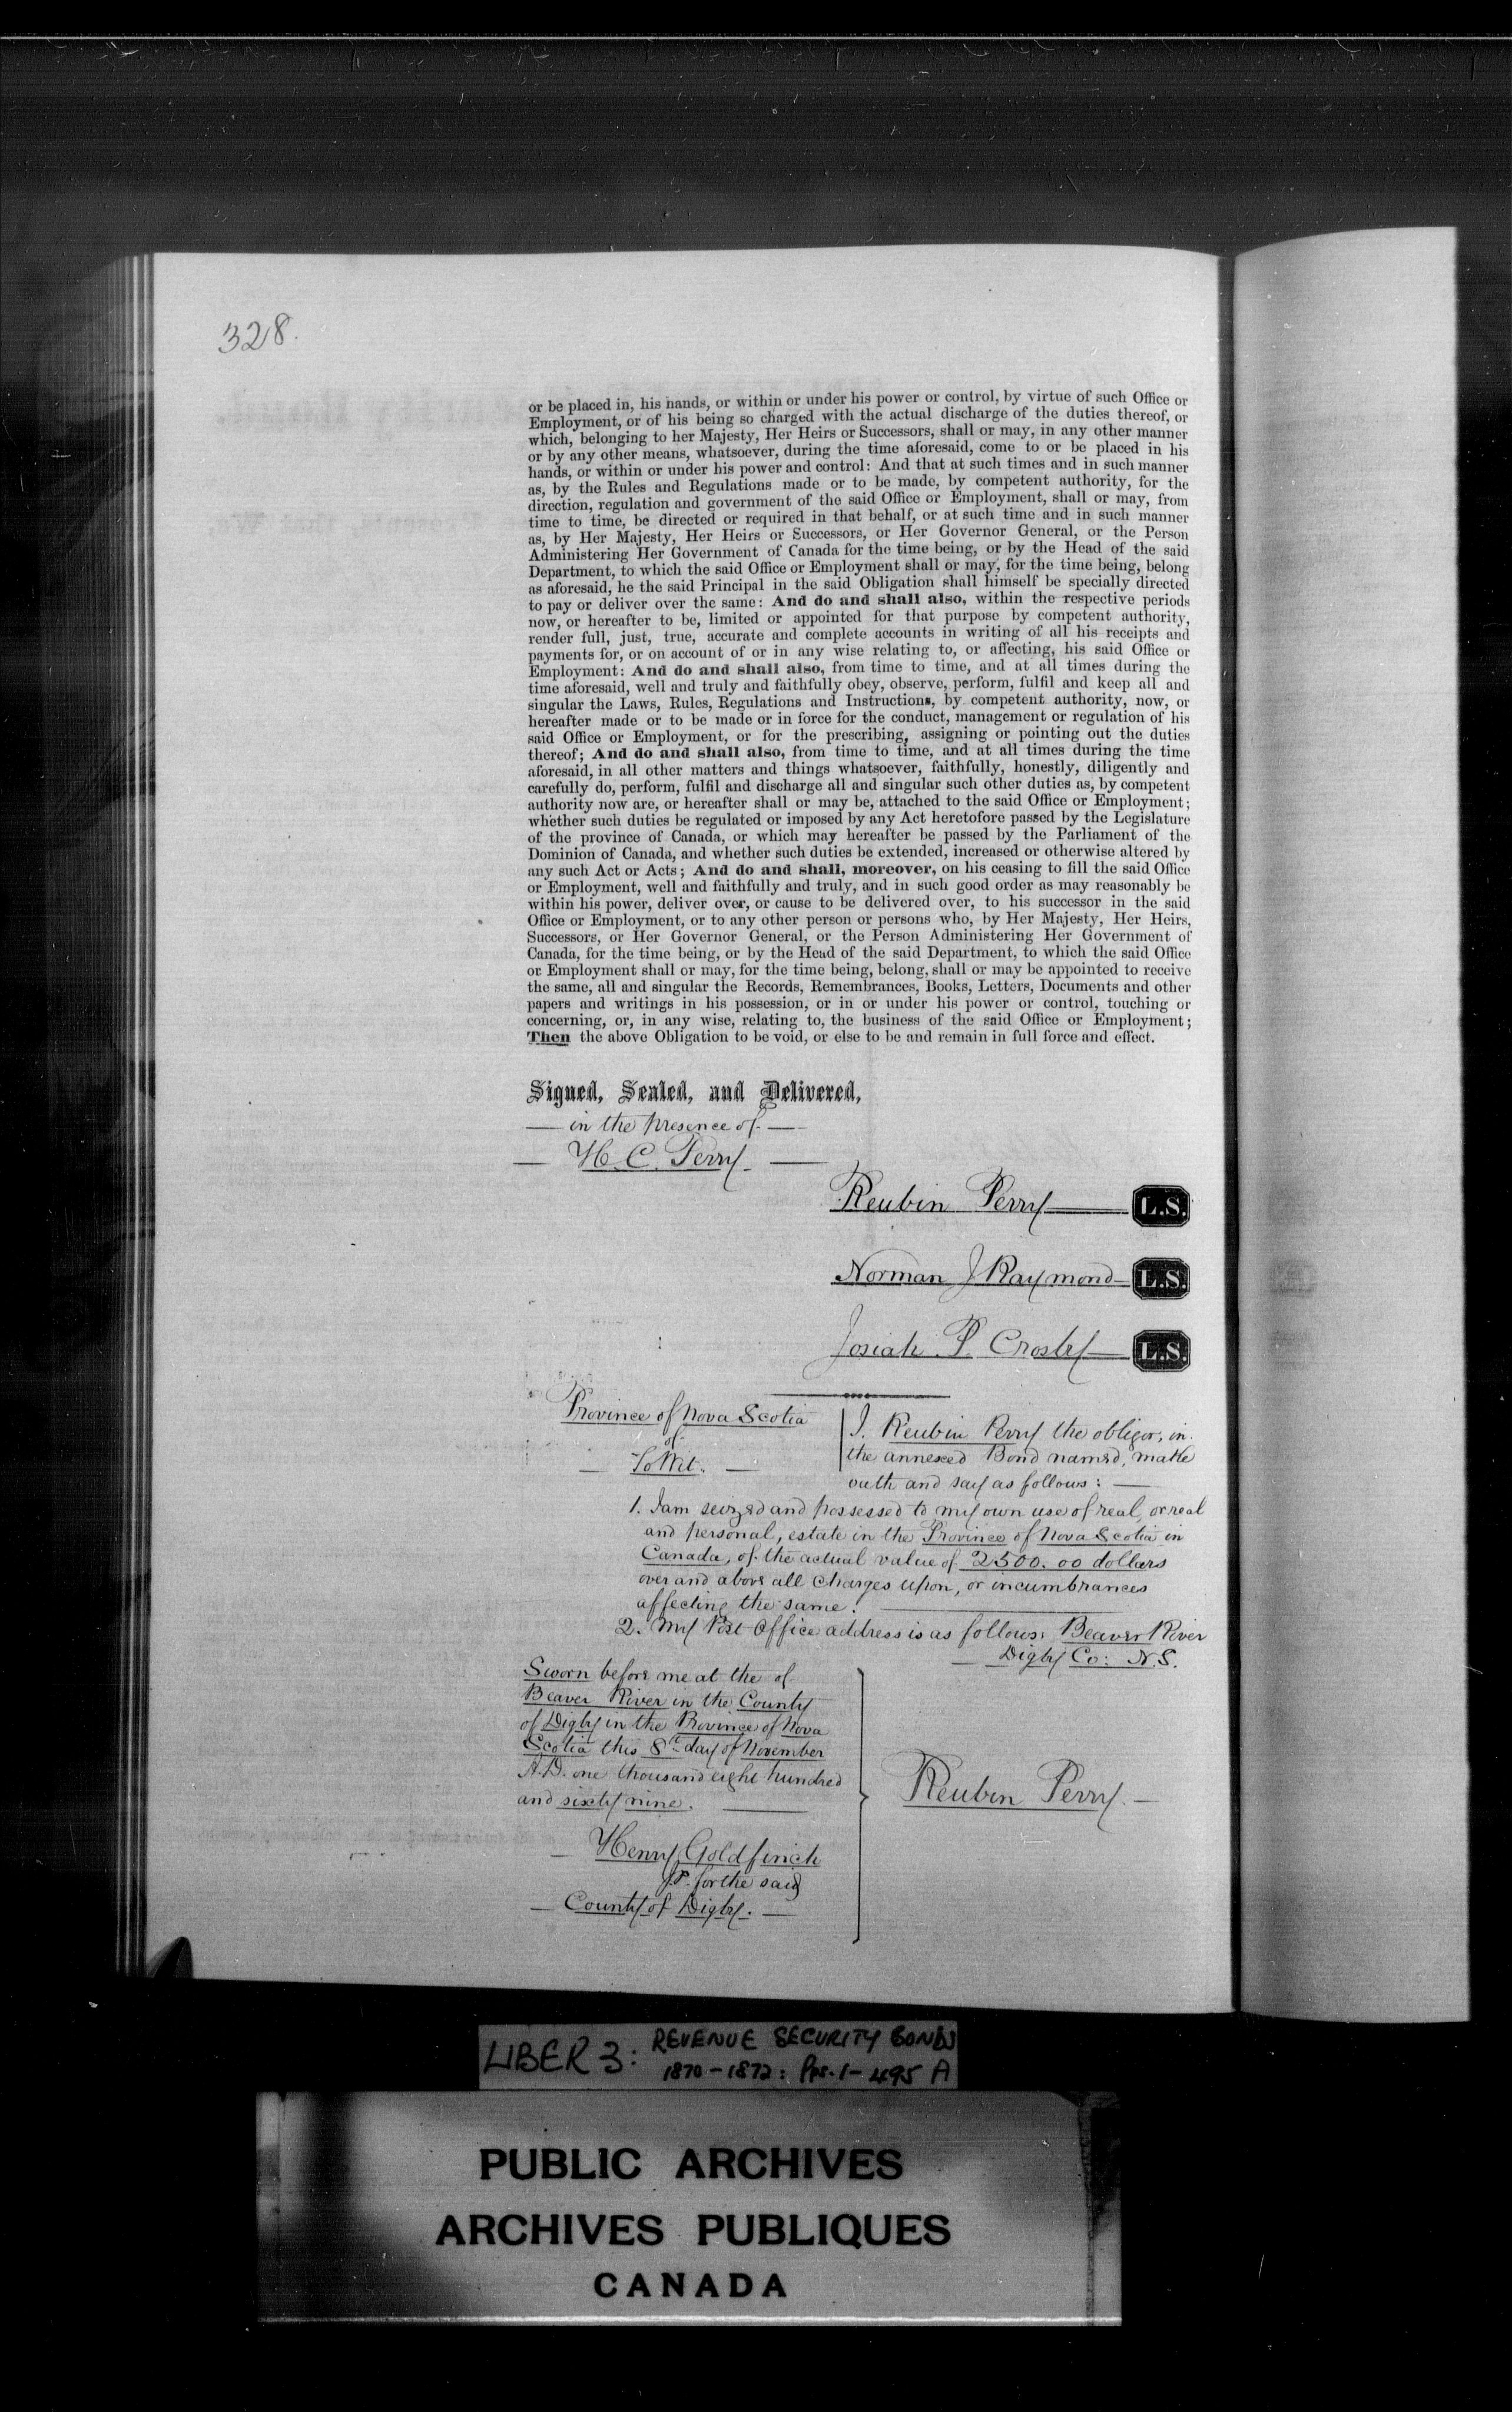 328.
or be placed in, his hands, or within or under his power or control, by virtue of such Office or
Employment, or of his being so charged with the actual discharge of the duties thereof, or
which, belonging to her Majesty, Her Heirs or Successors, shall or may, in any other manner
or by any other means, whatsoever, during the time aforesaid, come to or be placed in his
hands, or within or under his power and control: And that at such times and in such manner
as, by the Rules and Regulations made or to be made, by competent authority, for the
direction, regulation and government of the said Office or Employment, shall or may, from
time to time, be directed or required in that behalf, or at such time and in such manner
as, by Her Majesty, Her Heirs or Successors, or Her Governor General, or the Person
Administering Her Government of Canada for the time being, or by the Head of the said
Department, to which the said Office or Employment shall or may, for the time being, belong
as aforesaid, he the said Principal in the said Obligation shall himself be specially directed
to pay or deliver over the same: And do and shall also, within the respective periods
now, or hereafter to be, limited or appointed for that purpose by competent authority,
render full, just, true, accurate and complete accounts in writing of all his receipts and
payments for, or on account of or in any wise relating to, or affecting, his said Office or
Employment: And do and shall also, from time to time, and at all times during the
time aforesaid, well and truly and faithfully obey, observe, perform, fulfil and keep all and
singular the Laws, Rules, Regulations and Instructions, by competent authority, now, or
hereafter made or to be made or in force for the conduct, management or regulation of his
said Office or Employment, or for the prescribing, assigning or pointing out the duties
thereof; And do and shall also, from time to time, and at all times during the time
aforesaid, in all other matters and things whatsoever, faithfully, honestly, diligently and
carefully do, perform, fulfil and discharge all and singular such other duties as, by competent
authority now are, or hereafter shall or may be, attached to the said Office or Employment;
whether such duties be regulated or imposed by any Act heretofore passed by the Legislature
of the province of Canada, or which may hereafter be passed by the Parliament of the
Dominion of Canada, and whether such duties be extended, increased or otherwise altered by
any such Act or Acts; And do and shall, moreover, on his ceasing to fill the said Office
or Employment, well and faithfully and truly, and in such good order as may reasonably be
within his power, deliver over, or cause to be delivered over, to his successor in the said
Office or Employment, or to any other person or persons who, by Her Majesty, Her Heirs,
Successors, or Her Governor General, or the Person Administering Her Government of
Canada, for the time being, or by the Head of the said Department, to which the said Office
or Employment shall or may, for the time being, belong, shall or may be appointed to receive
the same, all and singular the Records, Remembrances, Books, Letters, Documents and other
papers and writings in his possession, or in or under his power or control, touching or
concerning, or, in any wise, relating to, the business of the said Office or Employment;
Then the above Obligation to be void, or else to be and remain in full force and effect.
Signed, Sealed, and Delivered,
— in the presence of —
— H. C. Perry. —
Reubin Perry — L.S.
Norman J Raymond — L.S.
Josiah P. Crosby — L.S.
Province of Nova Scotia
of
— To Wit. —
I. Reubin Perry the obligor, in
the annexed Bond named, make
oath and say as follows: —
1. I am seized and possessed to my own use of real, or real
and personal, estate in the Province of Nova Scotia in
Canada, of the actual value of 2500.00 dollars
over and above all charges upon, or incumbrances
affecting the same. —
2. My Post Office address is as follows: Beaver River
— Digby Co: N.S.
Sworn before me at the of
Beaver River in the County
of Digby in the Province of Nova
Scotia this 8th day of November
A.D. one thousand eight hundred
and sixty nine. —
Reubin Perry. —
— Henry Goldfinch
J.P. for the said
— County of Digby. —
LIBER 3: REVENUE SECURITY BONDS
1870-1872: Pps. 1-495 A
PUBLIC ARCHIVES
ARCHIVES PUBLIQUES
CANADA